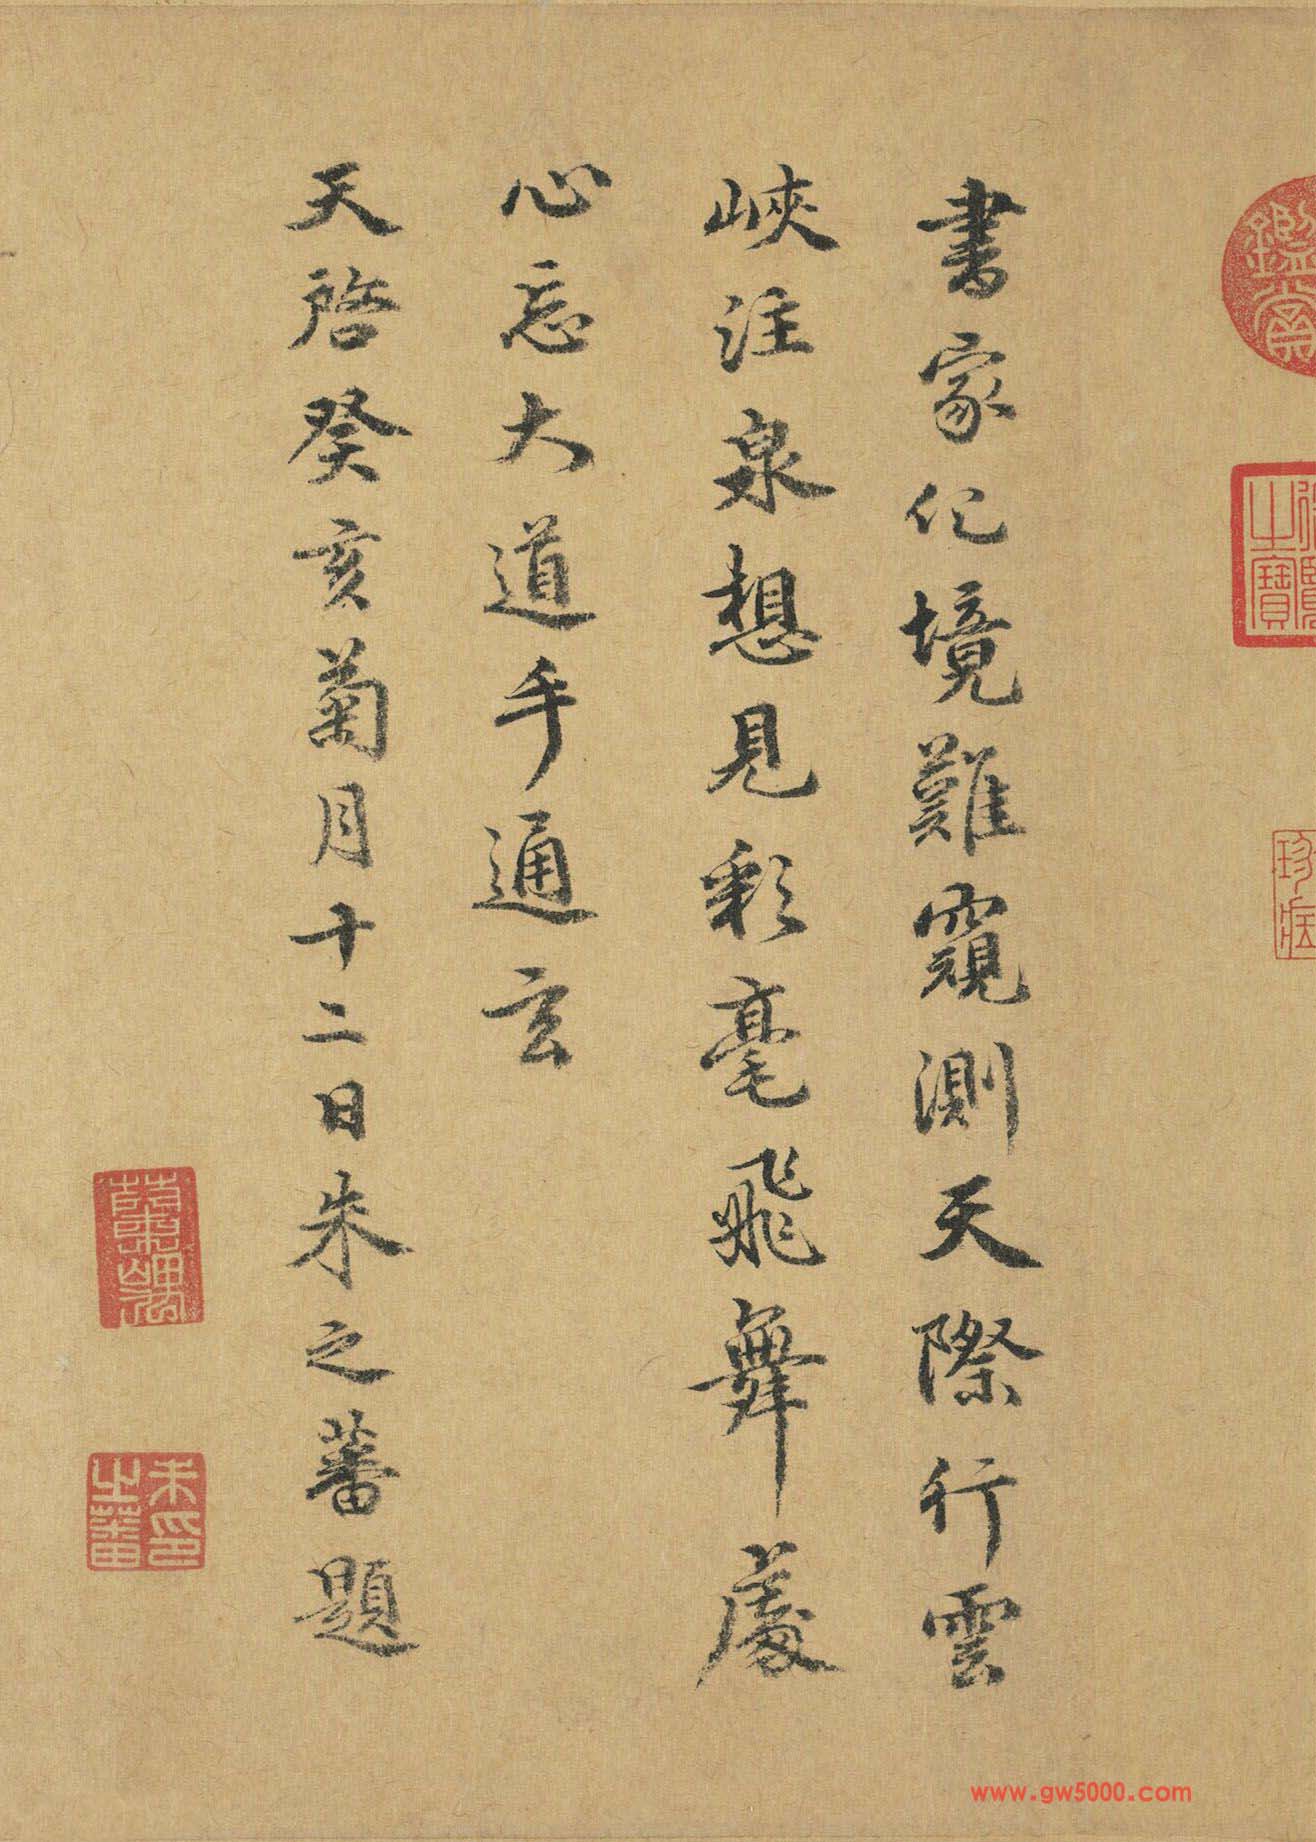 書家化境難窺測天際行雲
峽注泉想見彩毫飛舞處
心忘大道手通玄
天啓癸亥菊月十二日朱之蕃題
朱印之蕃
鑑賞
之寶
珍
www.gw5000.com